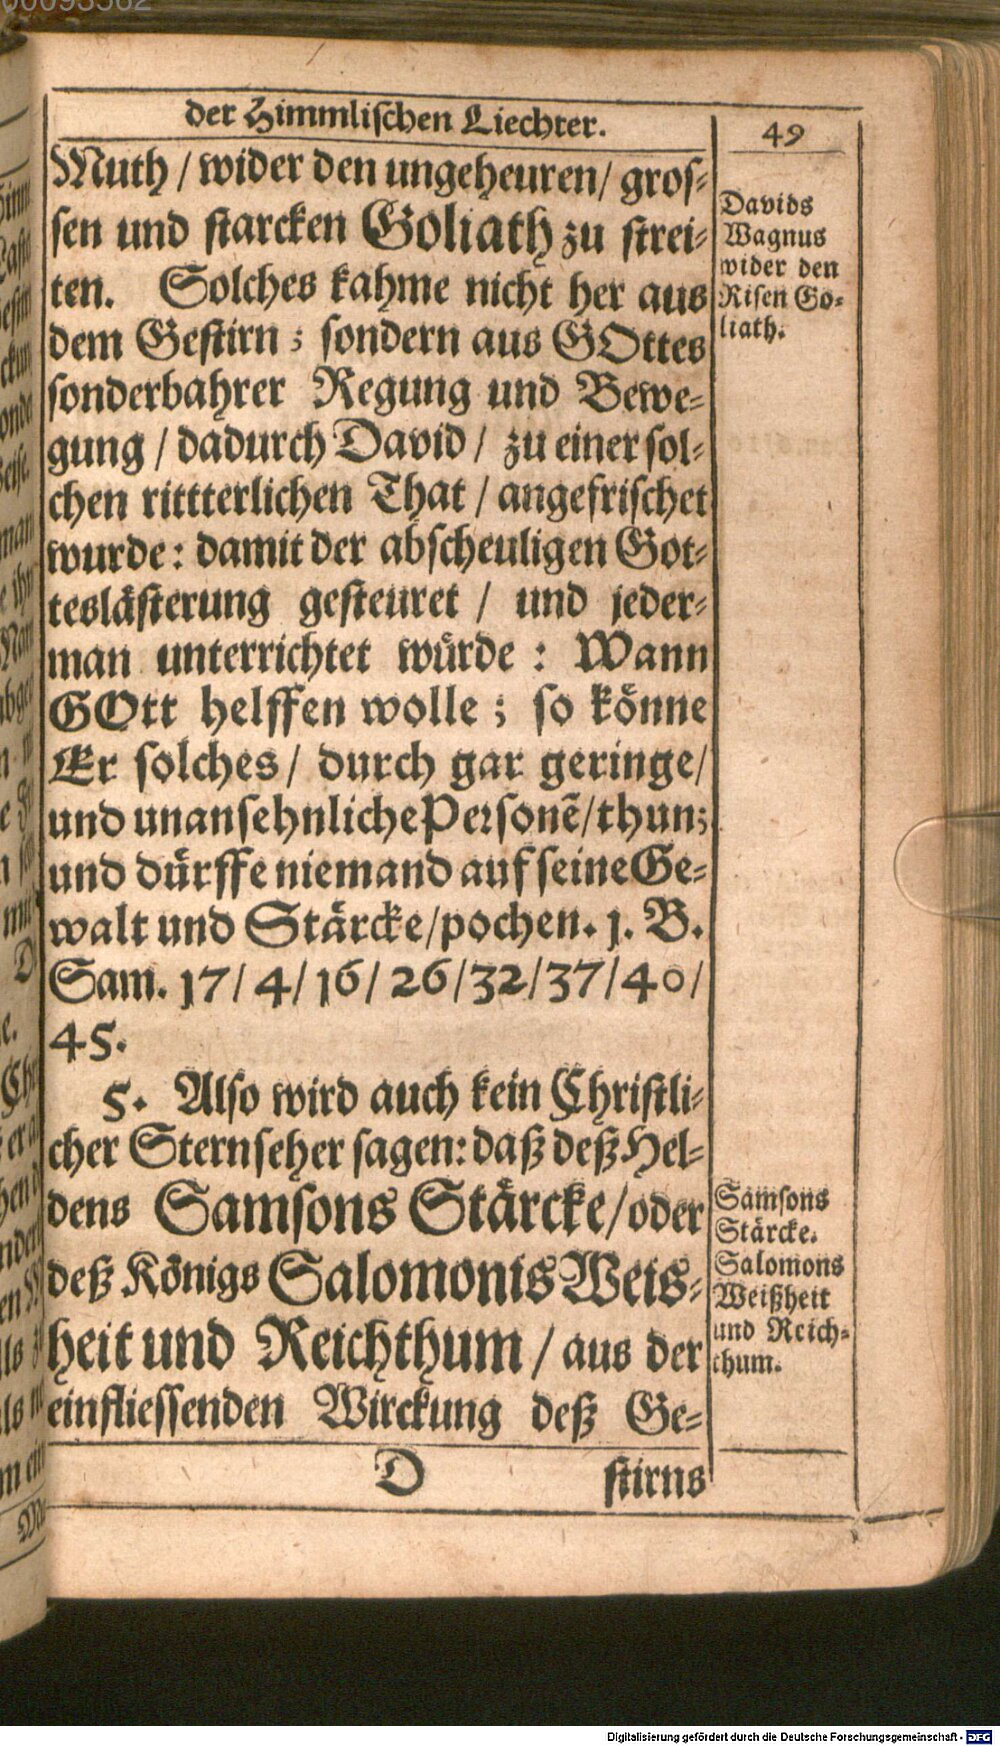 der Himmlischen Liechter.
49
Muth / wider den ungeheuren / gros-
sen und starcken Goliath zu strei-
ten. Solches kahme nicht her aus
dem Gestirn; sondern aus GOttes
sonderbahrer Regung und Bewe-
gung / dadurch David / zu einer sol-
chen rittterlichen That / angefrischet
wurde: damit der abscheuligen Got-
teslästerung gesteuret / und jeder-
man unterrichtet würde: Wann
GOtt helffen wolle; so könne
Er solches / durch gar geringe /
und unansehnliche Personē / thun;
und dürffe niemand auf seine Ge-
walt und Stärcke / pochen. 1. B.
Sam. 17 / 4 / 16 / 26 / 32 / 37 / 40 /
45.
5. Also wird auch kein Christli-
cher Sternseher sagen: daß deß Hel-
dens Samsons Stärcke / oder
deß Königs Salomonis Weis-
heit und Reichthum / aus der
einfliessenden Wirckung deß Ge-
D
stirns
Davids
Wagnus
wider den
Risen Go-
liath.
Samsons
Stärcke.
Salomons
Weißheit
und Reich-
thum.
Digitalisierung gefördert durch die Deutsche Forschungsgemeinschaft - DFG